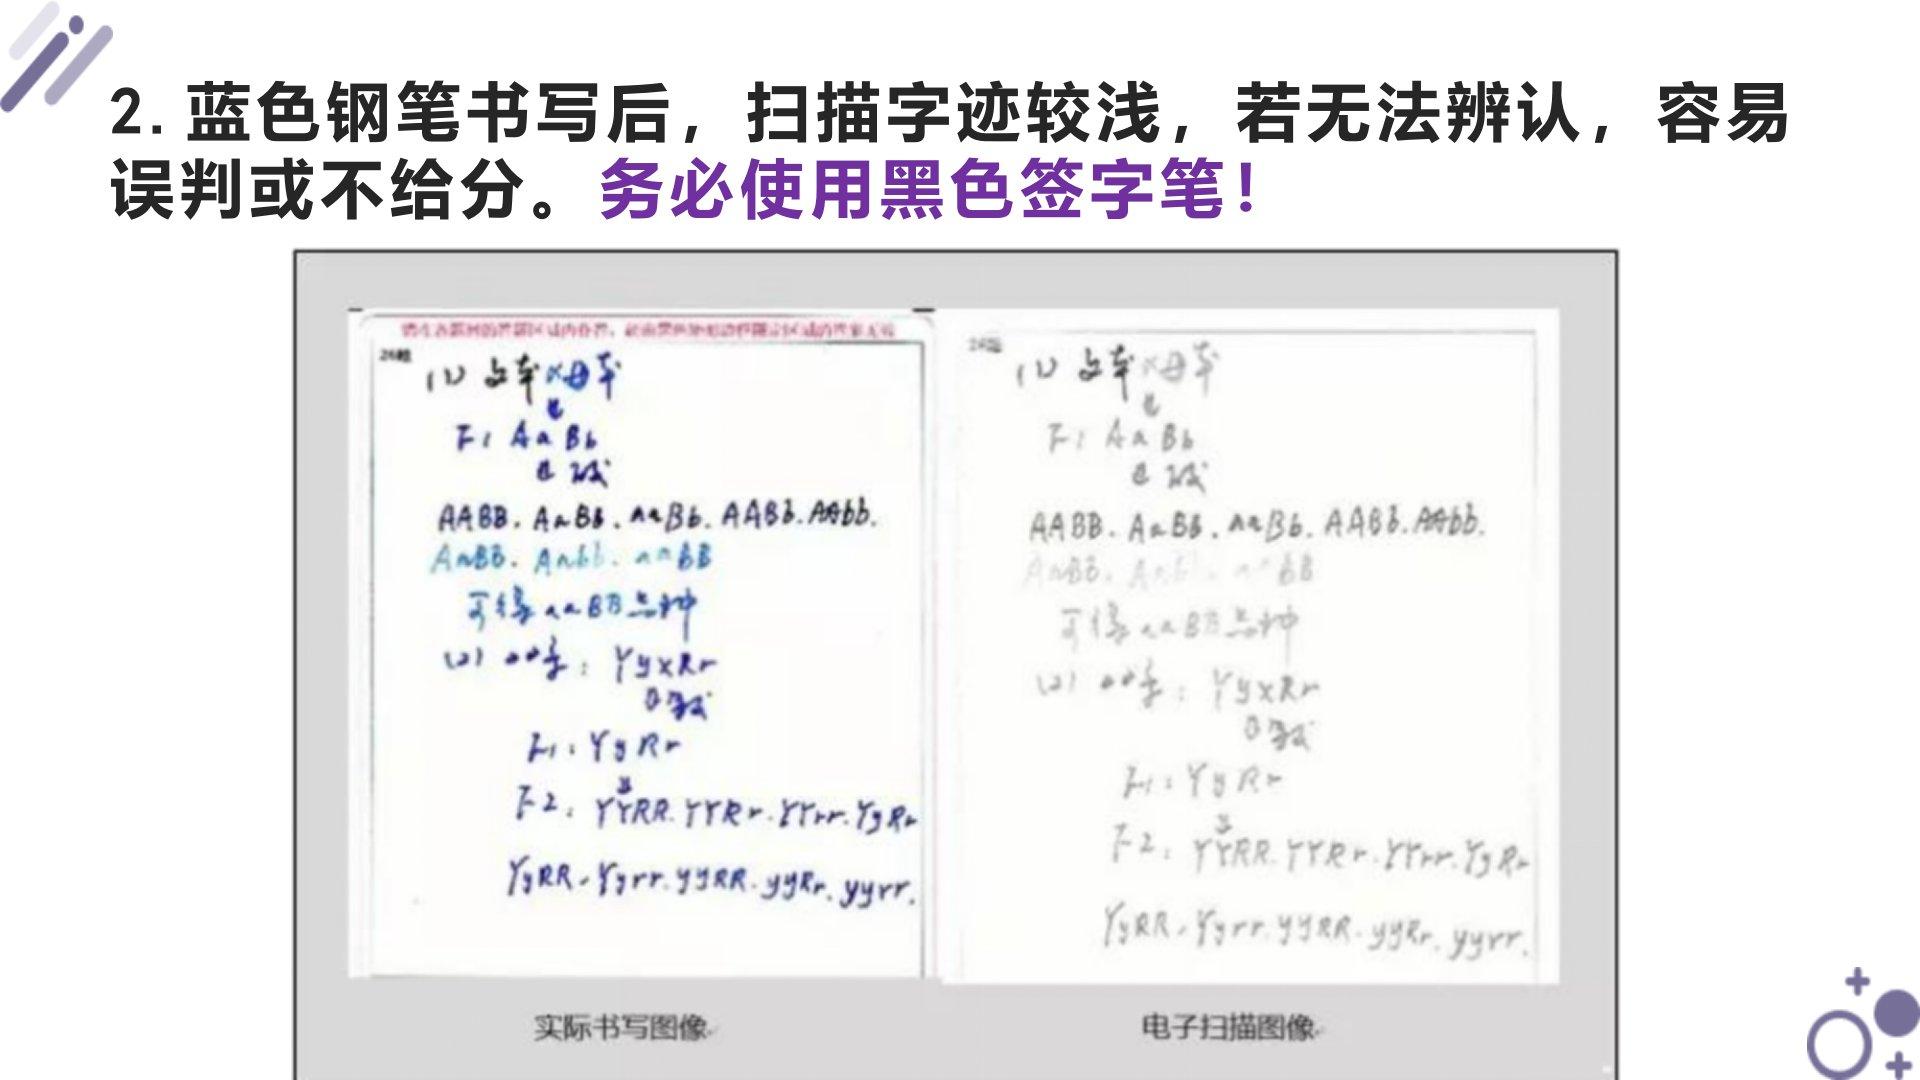 2. 蓝色钢笔书写后，扫描字迹较浅，若无法辨认，容易
误判或不给分。务必使用黑色签字笔！
26题
(1)
F1 AaBb
AABB. AaBb. aaBb. AABb. AAbb.
AaBB. Aabb. aaBB
可得aaBB品种
(2) YyxRr
F1: YyRr
F2: YYRR. YYRr. YYrr. YyRr
YyRR. Yyrr. yyRR. yyRr. yyrr.
实际书写图像
(1)
F1 AaBb
AABB. AaBb. aaBb. AABb. AAbb.
可得aaBB品种
(2) YyxRr
F1: YyRr
F2: YYRR. YYRr. YYrr. YyRr
YyRR. Yyrr. yyRR. yyRr. yyrr.
电子扫描图像